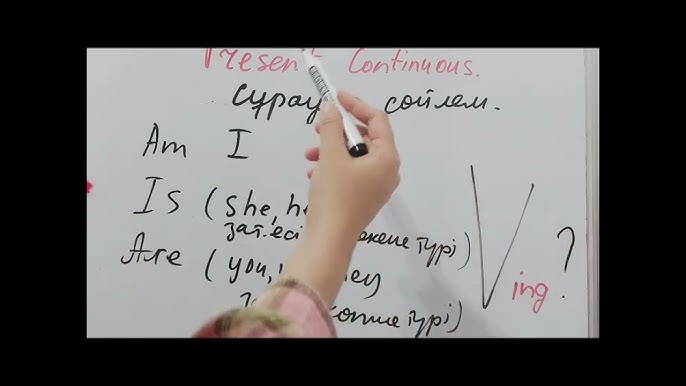 Present Continuous.
Сұрау сөйлем.
Am I
Is (she, he
зат есі жекеше түрі)
Are (you,
көпше түрі)
V ing ?